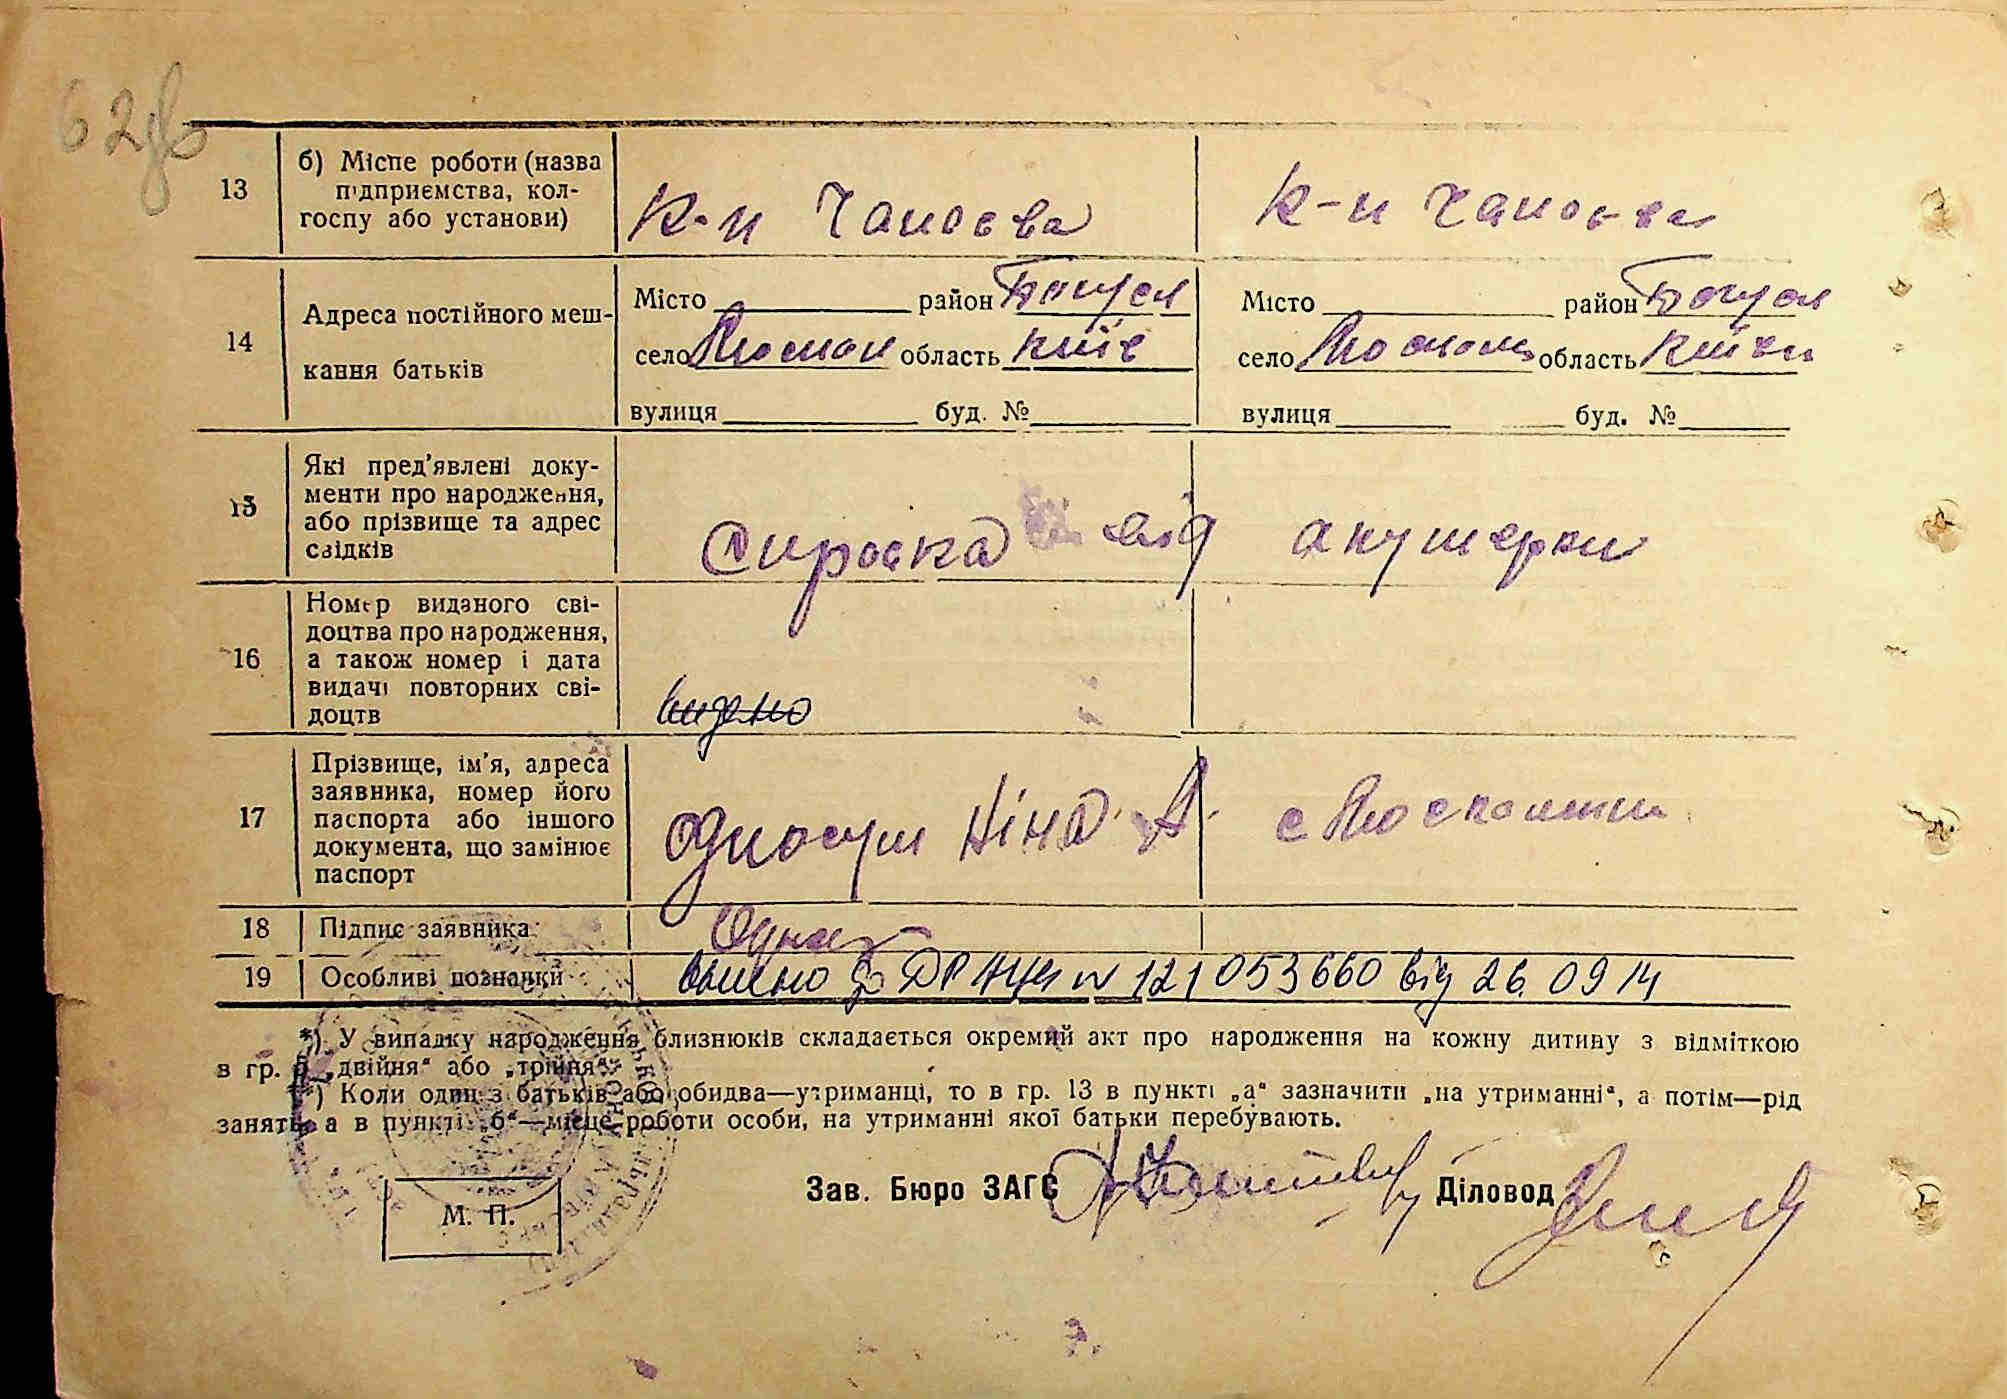 62зв
13
б) Місце роботи (назва
підприємства, кол-
госпу або установи)
к-п Чапаєва
к-п Чапаєва
14
Адреса постійного меш-
кання батьків
Місто район Богусл
село область Київ
вулиця буд. №
Місто район Богусл
село область Київ
вулиця буд. №
15
Які пред'явлені доку-
менти про народження,
або прізвище та адрес
свідків
Справка від акушерки
16
Номер виданого сві-
доцтва про народження,
а також номер і дата
видачі повторних сві-
доцтв
видано
17
Прізвище, ім'я, адреса
заявника, номер його
паспорта або іншого
документа, що замінює
паспорт
Ніна А. с
18
Підпис заявника
19
Особливі познаки
ДРАЦН N 121053660 від 26.09 14
*) У випадку народження близнюків складається окремий акт про народження на кожну дитину з відміткою
в гр. „двійня“ або „трійня“.
**) Коли один з батьків або обидва—утриманці, то в гр. 13 в пункті „а“ зазначити „на утриманні“, а потім—рід
занять, а в пункті „б“—місце роботи особи, на утриманні якої батьки перебувають.
Зав. Бюро ЗАГС
Діловод
М. П.